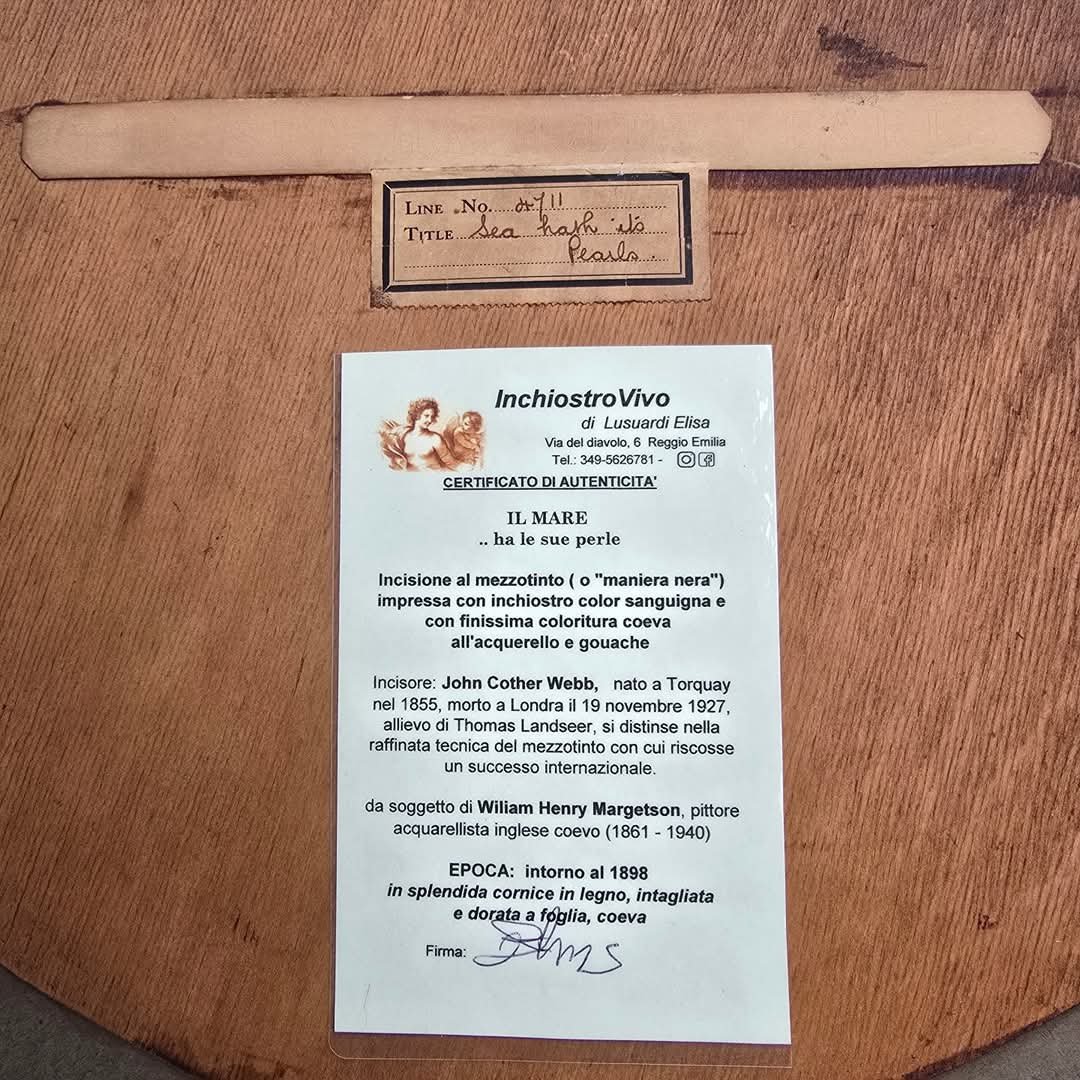 LINE No. 4711
TITLE Sea hath it's
Pearls.
InchiostroVivo
di Lusuardi Elisa
Via del diavolo, 6 Reggio Emilia
Tel.: 349-5626781 -
CERTIFICATO DI AUTENTICITA'
IL MARE
.. ha le sue perle
Incisione al mezzotinto ( o "maniera nera")
impressa con inchiostro color sanguigna e
con finissima coloritura coeva
all'acquerello e gouache
Incisore: John Cother Webb, nato a Torquay
nel 1855, morto a Londra il 19 novembre 1927,
allievo di Thomas Landseer, si distinse nella
raffinata tecnica del mezzotinto con cui riscosse
un successo internazionale.
da soggetto di Wiliam Henry Margetson, pittore
acquarellista inglese coevo (1861 - 1940)
EPOCA: intorno al 1898
in splendida cornice in legno, intagliata
e dorata a foglia, coeva
Firma: